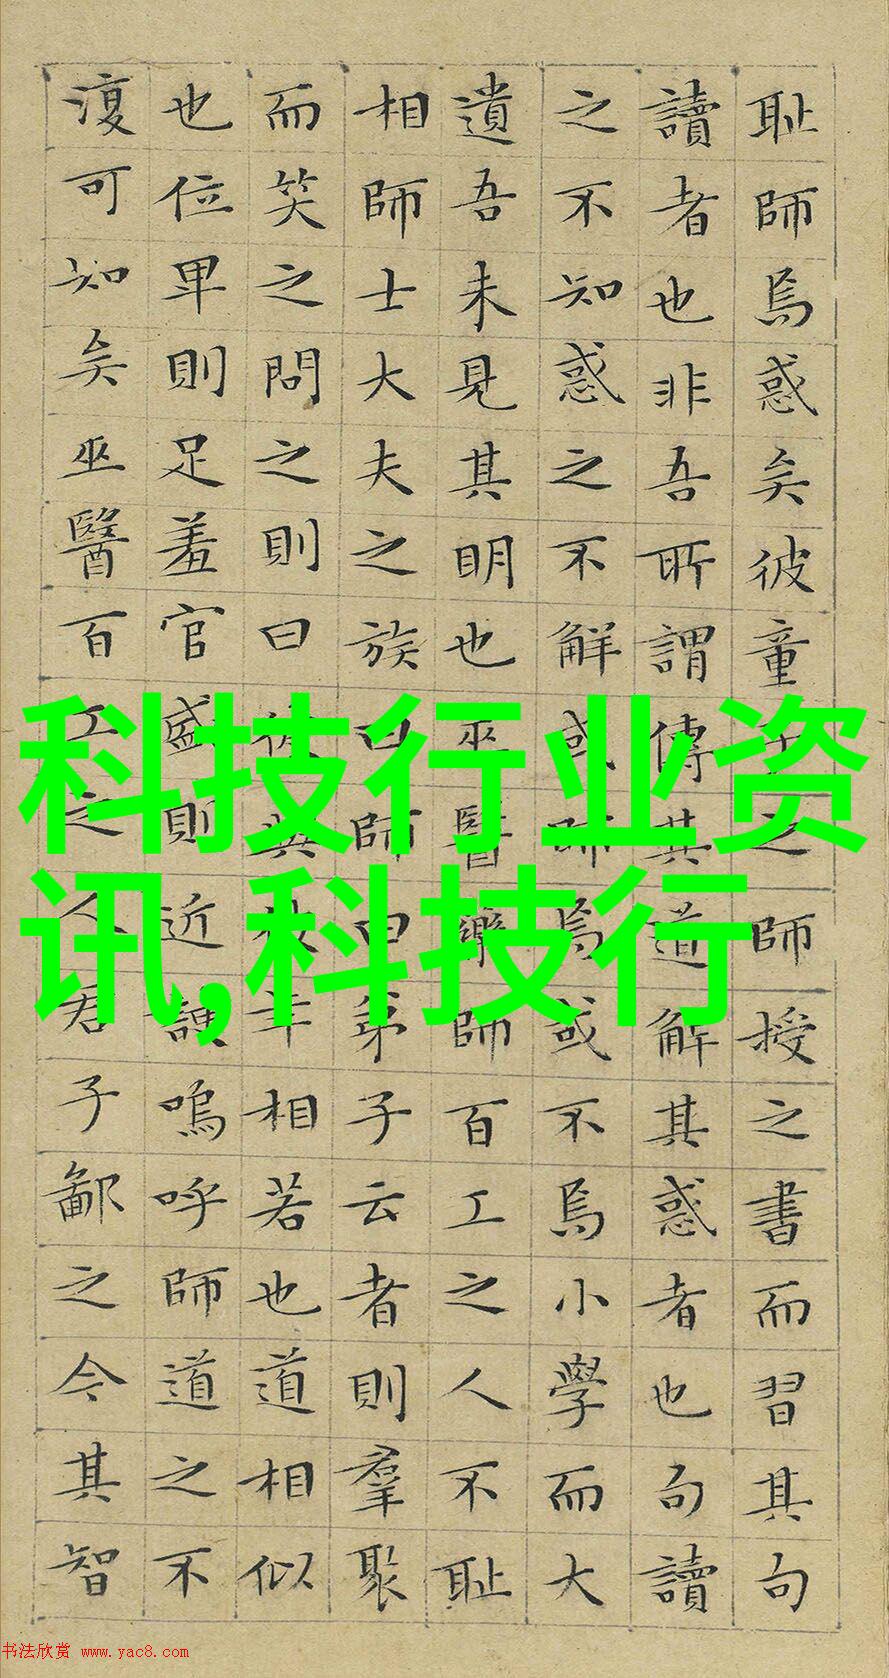 耻師焉惑矣彼童子之師授之書而習其句
讀者也非吾所謂傳其道解其惑者也句讀
之不知惑之不解或師焉或不焉小學而大
遺吾未見其明也巫醫樂師百工之人不耻
相師士大夫之族曰師曰弟子云者則羣聚
而笑之問之則曰彼與彼年相若也道相似
也位卑則足羞官盛則近諛嗚呼師道之不
復可知矣巫醫百工之人君子鄙之今其智
科技行业资
讯,科技行
书法欣赏 www.yac8.com